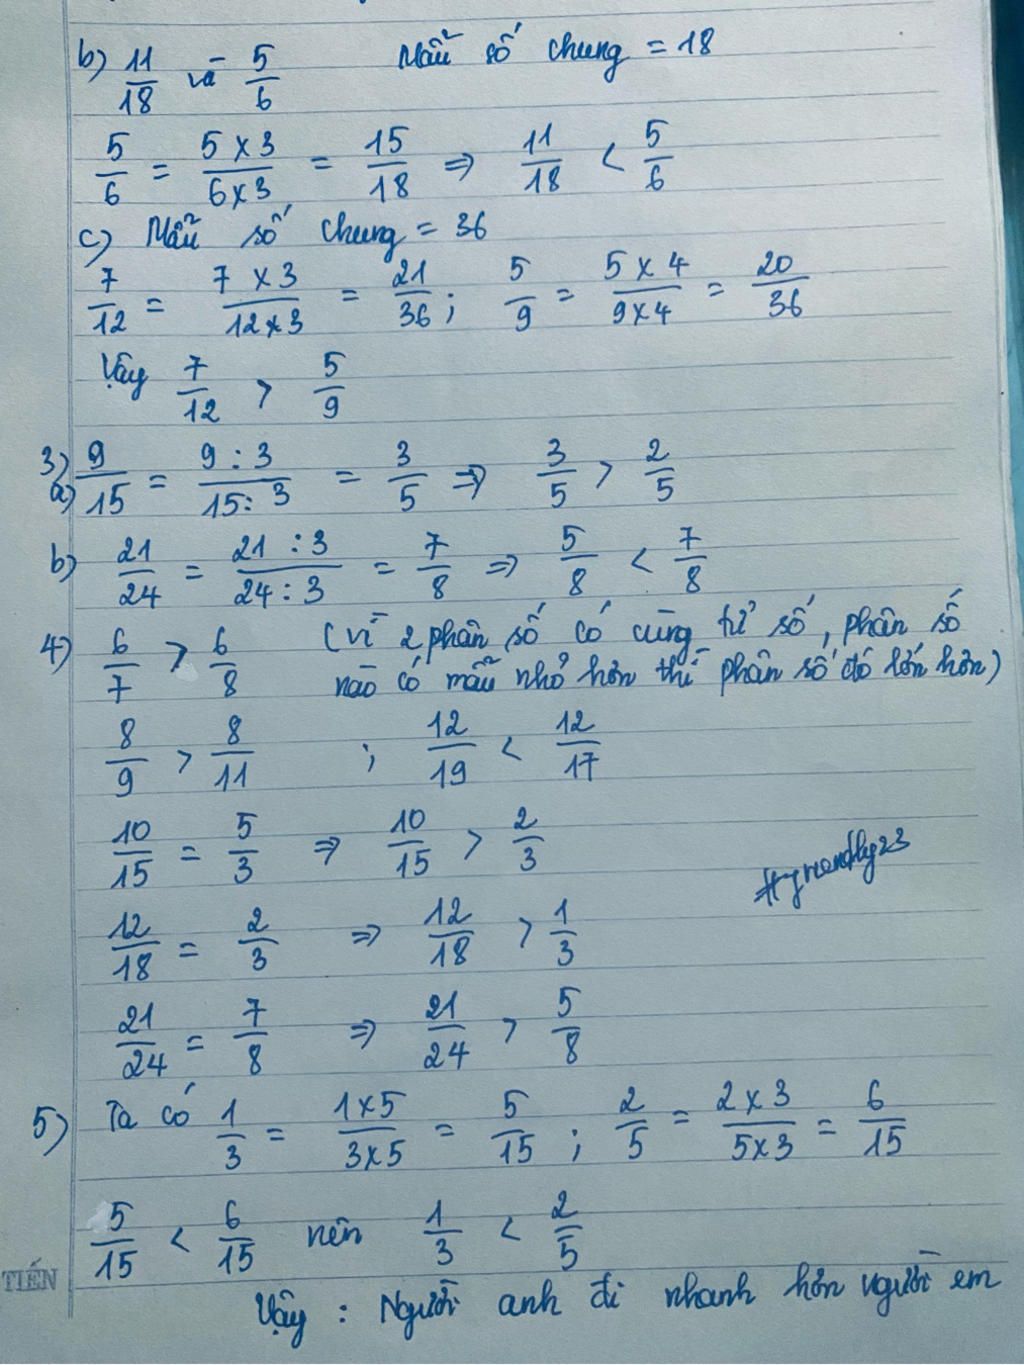 b) 11/18 và 5/6 Mẫu số chung = 18
5/6 = 5 x 3/6 x 3 = 15/18 => 11/18 < 5/6
c) Mẫu số chung = 36
7/12 = 7 x 3/12 x 3 = 21/36 ; 5/9 = 5 x 4/9 x 4 = 20/36
Vậy 7/12 > 5/9
3) a) 9/15 = 9 : 3/15 : 3 = 3/5 => 3/5 > 2/5
b) 21/24 = 21 : 3/24 : 3 = 7/8 => 5/8 < 7/8
4) 6/7 > 6/8 (vì 2 phân số có cùng tử số, phân số
nào có mẫu nhỏ hơn thì phân số đó lớn hơn)
8/9 > 8/11 ; 12/19 < 12/17
10/15 = 5/3 => 10/15 > 2/3
12/18 = 2/3 => 12/18 > 1/3
21/24 = 7/8 => 21/24 > 5/8
5) Ta có 1/3 = 1 x 5/3 x 5 = 5/15 ; 2/5 = 2 x 3/5 x 3 = 6/15
5/15 < 6/15 nên 1/3 < 2/5
TIẾN
Vậy : Người anh đi nhanh hơn người em